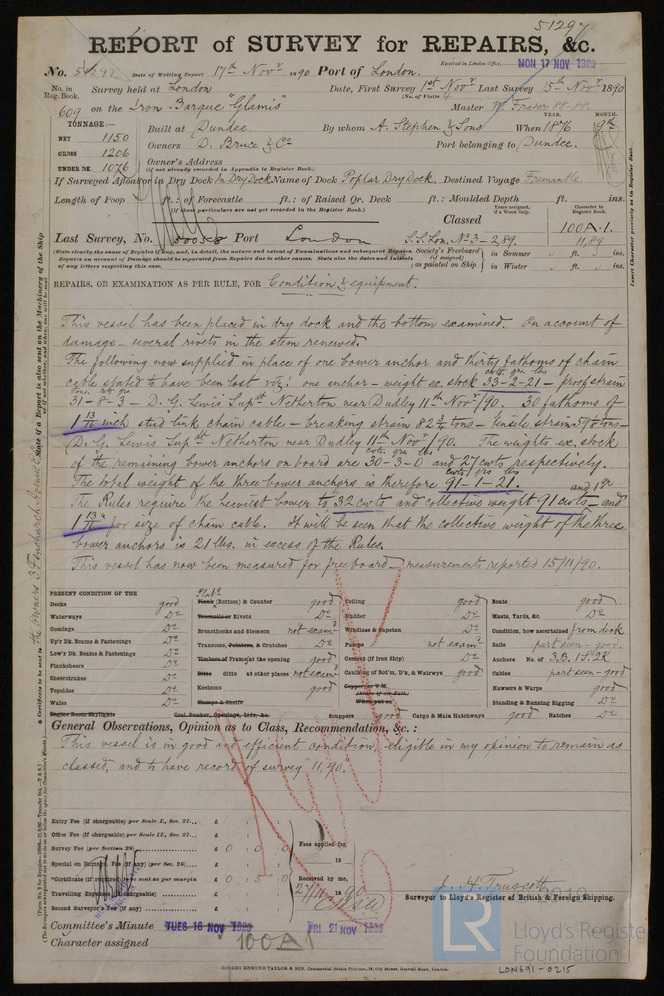 51297
REPORT of SURVEY for REPAIRS, &c.
Received in London Office, MON 17 NOV 1890
No. Date of Writing Report 17th Novr 1890 Port of London.
No. in Reg. Book. Survey held at London Date, First Survey 1st Novr Last Survey 15th Novr 1890
(No. of Visits 4
609 on the Iron Barque "Glamis" Master W. Fraser 88-88.
TONNAGE:— YEAR. MONTH.
NET 1150 Built at Dundee By whom A. Stephen & Sons When 1876 9th
GROSS 1206 Owners D. Bruce & Co Port belonging to Dundee.
UNDER DK 1076 Owner's Address
(if not already recorded in Appendix to Register Book.)
If Surveyed Afloat or in Dry Dock In Dry Dock Name of Dock Poplar Dry Dock. Destined Voyage Fremantle.
Length of Poop ft.: of Forecastle ft.: of Raised Qr. Deck ft.: Moulded Depth ft. ins.
(if these particulars are not yet recorded in the Register Book.)
Years assigned, if a Wood Ship. Character in Register Book.
Classed 100A.1.
11,89
Last Survey, No. 50058 Port London S.S. Lon. No 3 - 2,89.
(State clearly the nature of Repairs if any, and, in detail, the nature and extent of Examinations and subsequent Repairs. Repairs on account of Damage should be separated from Repairs due to other causes. State also the dates and initials of any letters respecting this case.
Society's Freeboard (if assigned) as painted on Ship in Summer ft. ins.
in Winter ft. ins.
REPAIRS, OR EXAMINATION AS PER RULE, FOR Condition & equipment.
This vessel has been placed in dry dock and the bottom examined. On account of
damage - several rivets in the stem renewed.
The following now supplied in place of one bower anchor and thirty fathoms of chain
cable stated to have been lost viz: one anchor - weight ex. stock 33-2-21 - proof strain
31-8-3 - D. G. Lewis Supst Netherton near Dudley 11th Novr/90. 30 fathoms of
1 13/16 inch stud link chain cable - breaking strain 82 3/4 tons - tensile strain 59 tons -
D. G. Lewis Supst Netherton near Dudley 11th Novr/90. The weights ex. stock
of the remaining bower anchors on board are 30-3-0 and 27 cwts respectively.
The total weight of the three bower anchors is therefore 91-1-21.
The Rules require the heaviest bower to 32 cwts and collective weight 91 cwts - and
1 13/16" for size of chain cable. It will be seen that the collective weight of the three
bower anchors is 21 lbs. in excess of the Rules.
This vessel has now been measured for freeboard - measurements reported 15/11/90.
PRESENT CONDITION OF THE
Decks good
Waterways Do
Comings Do
Up'r Dk. Beams & Fastenings Do
Low'r Dk. Beams & Fastenings Do
Planksheers Do
Sheerstrakes Do
Topsides Do
Wales Do
Engine Room Skylights
Plate
Plank (Bottom) & Counter good
Treenails or Rivets Do
Breasthooks and Stemson not examd
Transoms, Pointers, & Crutches Do
Timbers of Frame at the opening good
Ditto ditto at other places not examd
Keelsons good
Clamps & Shelfs
Coal Bunker, Openings, Lids, &c.
Ceiling good
Rudder Do
Windlass & Capstan Do
Pumps not examd
Cement (if Iron Ship) Do
Caulking of Bot'm, D'k, & Waterways good
Copper or Y.M.
When put on
Scuppers good Cargo & Main Hatchways good Hatches Do
Boats good
Masts, Yards, &c. Do
Condition, how ascertained from deck
Sails part seen - good
Anchors No. of 3.B. 1S. 2K
Cables part seen - good
Hawsers & Warps good
Standing & Running Rigging Do
General Observations, Opinion as to Class, Recommendation, &c.:
This vessel is in good and efficient condition, eligible in my opinion to remain as
classed, and to have record of survey 11,90.
Entry Fee (if chargeable) per Scale I., Sec. 27... £ : :
Office Fee (if chargeable) per Scale II., Sec. 27... £ : :
Survey Fee (per Section 28) £ 0 : 0 : 0
Special or Damage Fee (if any) (per Sec. 28) £ : :
*Certificate (if required) as sent as per margin £ 0 : 5 : 0
Travelling Expenses (if chargeable) £ : :
Second Surveyor's Fee (if any) £ : :
Fees applied for,
18
Received by me,
27/11 1890
J. H. Truscott
Surveyor to Lloyd's Register of British & Foreign Shipping.
Committee's Minute TUES 18 NOV 1890 FRI 21 NOV 1890
Character assigned 100A1
LR 2019
Lloyd's Register
Foundation
LON691-0215